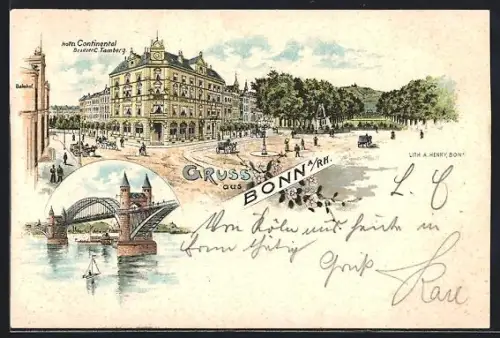 Hotel Continental
Besitzer C. Tamberg
Bahnhof
GRUSS
aus
BONN A/RH.
LITH. A. HENRY, BONN
L. E
Von Köln aus heute in
Bonn thätig
Gruß
Karl